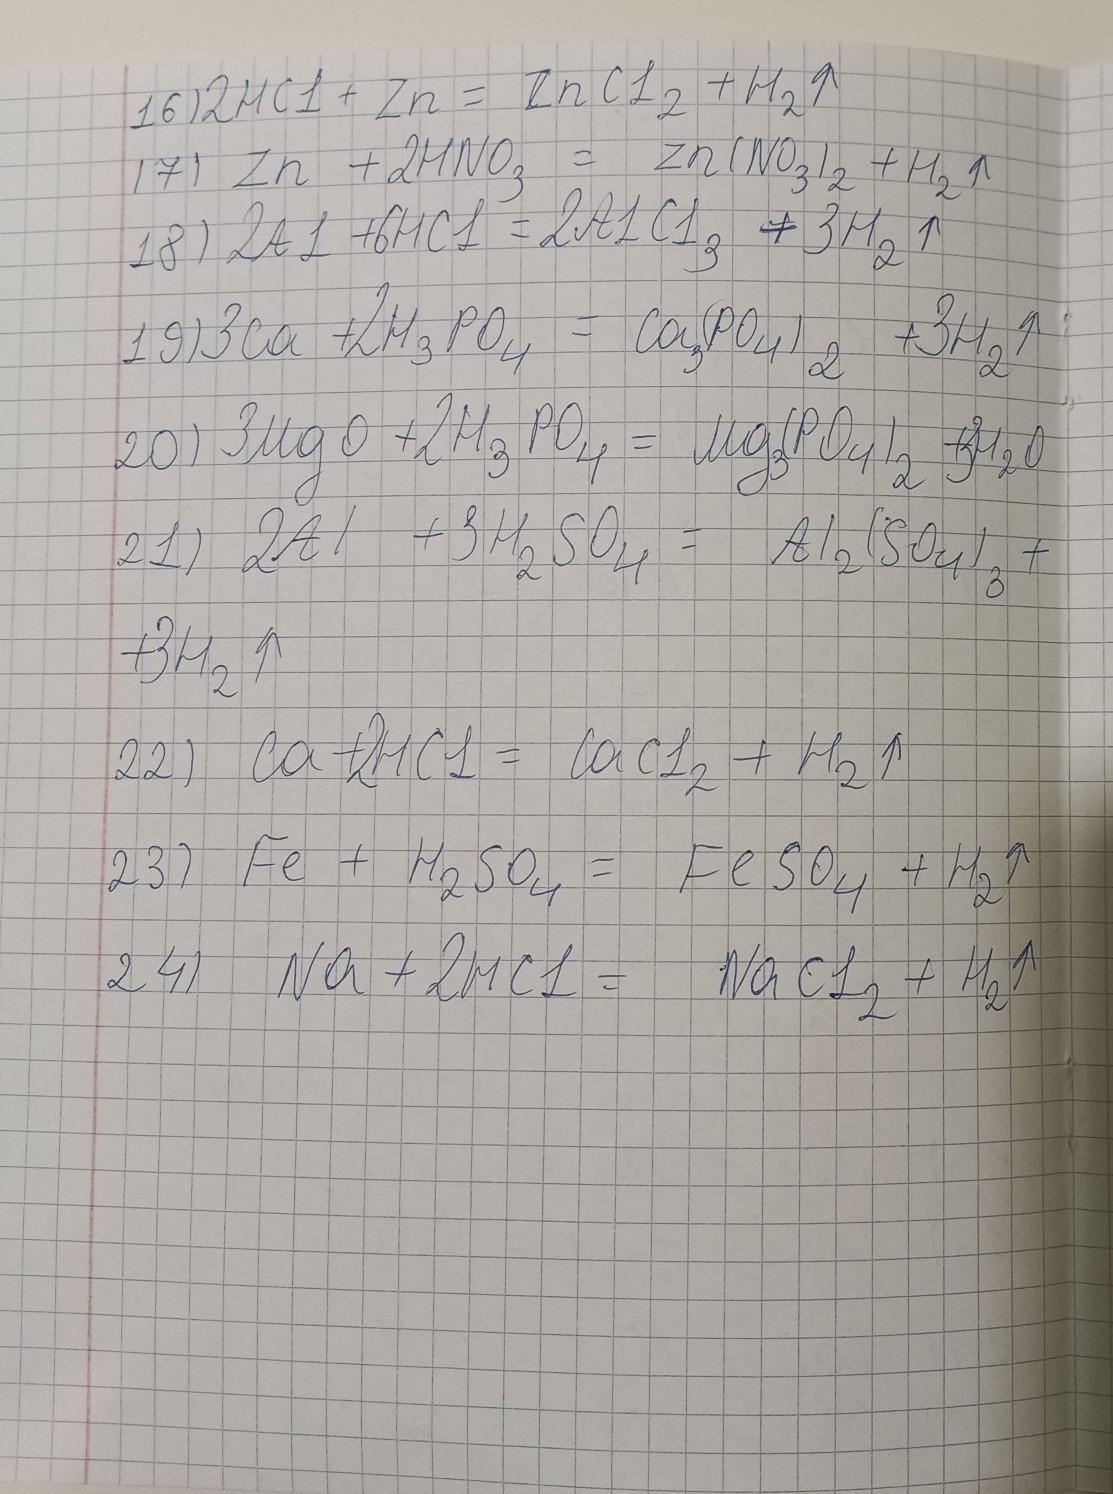 16) 2HCl + Zn = ZnCl₂ + H₂↑
17) Zn + 2HNO₃ = Zn(NO₃)₂ + H₂↑
18) 2Al + 6HCl = 2AlCl₃ + 3H₂↑
19) 3Ca + 2H₃PO₄ = Ca₃(PO₄)₂ + 3H₂↑
20) 3MgO + 2H₃PO₄ = Mg₃(PO₄)₂ + 3H₂O
21) 2Al + 3H₂SO₄ = Al₂(SO₄)₃ +
+3H₂↑
22) Ca + 2HCl = CaCl₂ + H₂↑
23) Fe + H₂SO₄ = FeSO₄ + H₂↑
24) Na + 2HCl = NaCl₂ + H₂↑